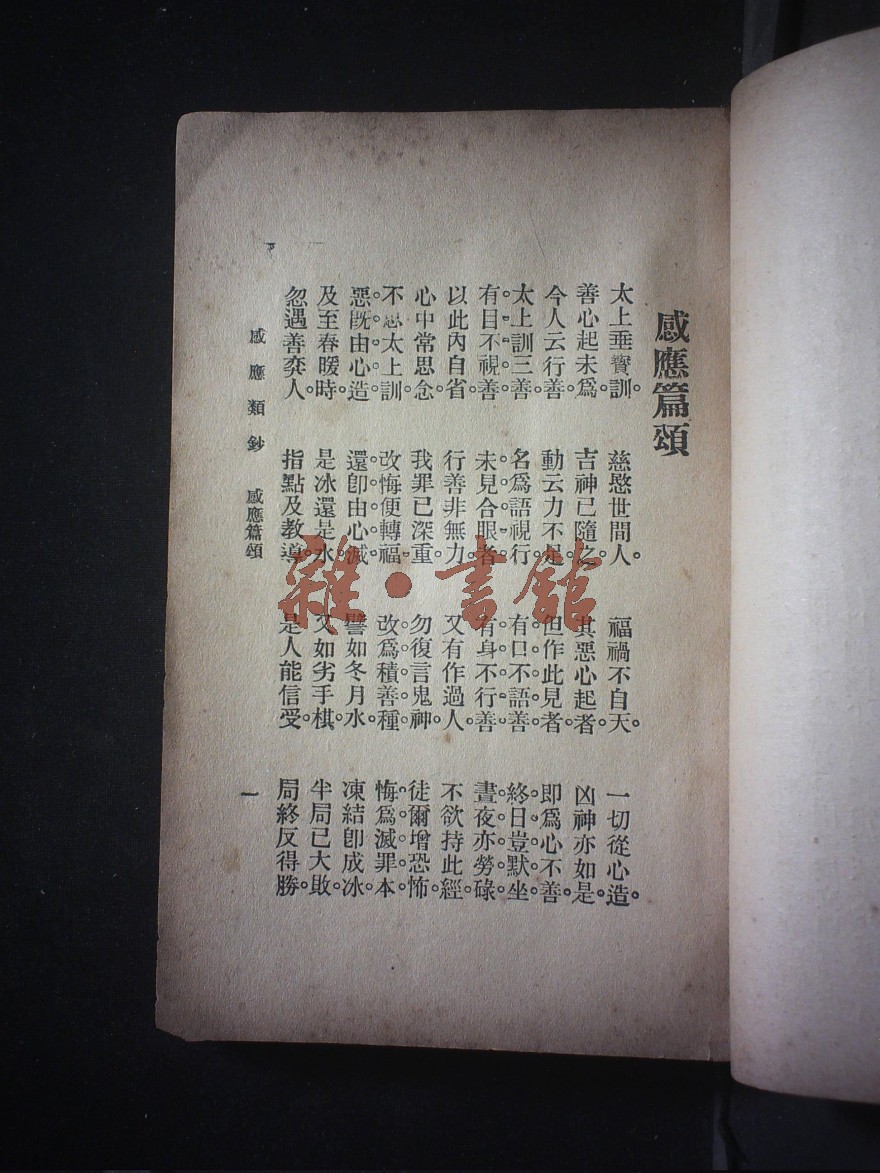 感應篇頌
太上垂寶訓。慈愍世間人。福禍不自天。一切從心造。
善心起未爲。吉神已隨之。其惡心起者。凶神亦如是。
今人云行善。動云力不足。但作此見者。即爲心不善。
太上訓三善。名爲語視行。有口不語善。終日豈默坐。
有目不視善。未見合眼者。有身不行善。晝夜亦勞碌。
以此內自省。行善非無力。又有作過人。不欲持此經。
心中常思念。我罪已深重。勿復言鬼神。徒爾增恐怖。
不思太上訓。改悔便轉福。改爲積善種。悔爲滅罪本。
惡旣由心造。還卽由心滅。譬如冬月水。凍結卽成冰。
及至春暖時。是冰還是水。又如劣手棋。半局已大敗。
忽遇善奕人。指點及教導。是人能信受。局終反得勝。
感應類鈔 感應篇頌 一
雜·書館